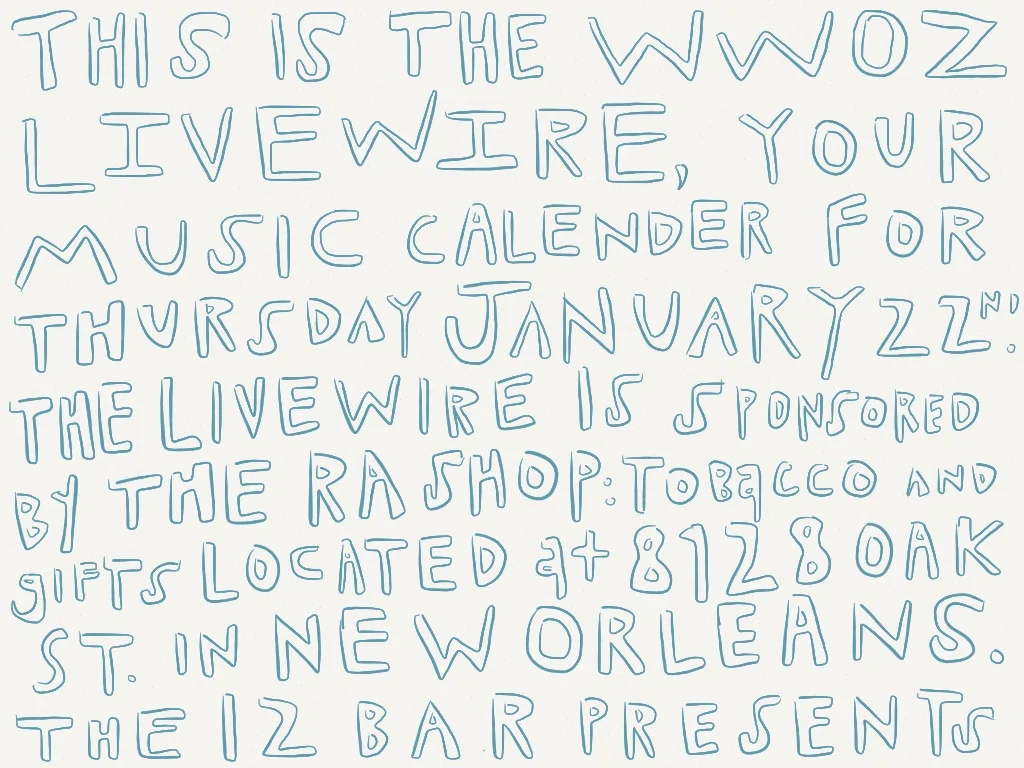 THIS IS THE WWOZ
LIVEWIRE, YOUR
MUSIC CALENDER FOR
THURSDAY JANUARY 22ND.
THE LIVEWIRE IS SPONSORED
BY THE RA SHOP: TOBACCO AND
gIFTS LOCATED at 8128 OAK
ST. IN NEW ORLEANS.
THE 12 BAR PRESENTS